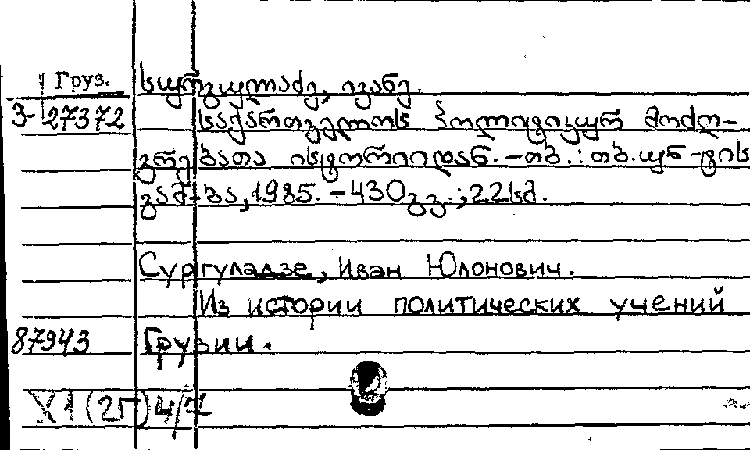 Груз.
სურგულაძე, ივანე.
3-27372
საქართველოს პოლიტიკურ მოძღ-
ვრებათა ისტორიიდან. - თბ. : თბ. უნ-ტის
გამ-ბა, 1985. - 430 გვ. ; 22 სმ.
Сургуладзе, Иван Юлонович.
Из истории политических учений
87943 Грузии.
X1(2Г)4/7